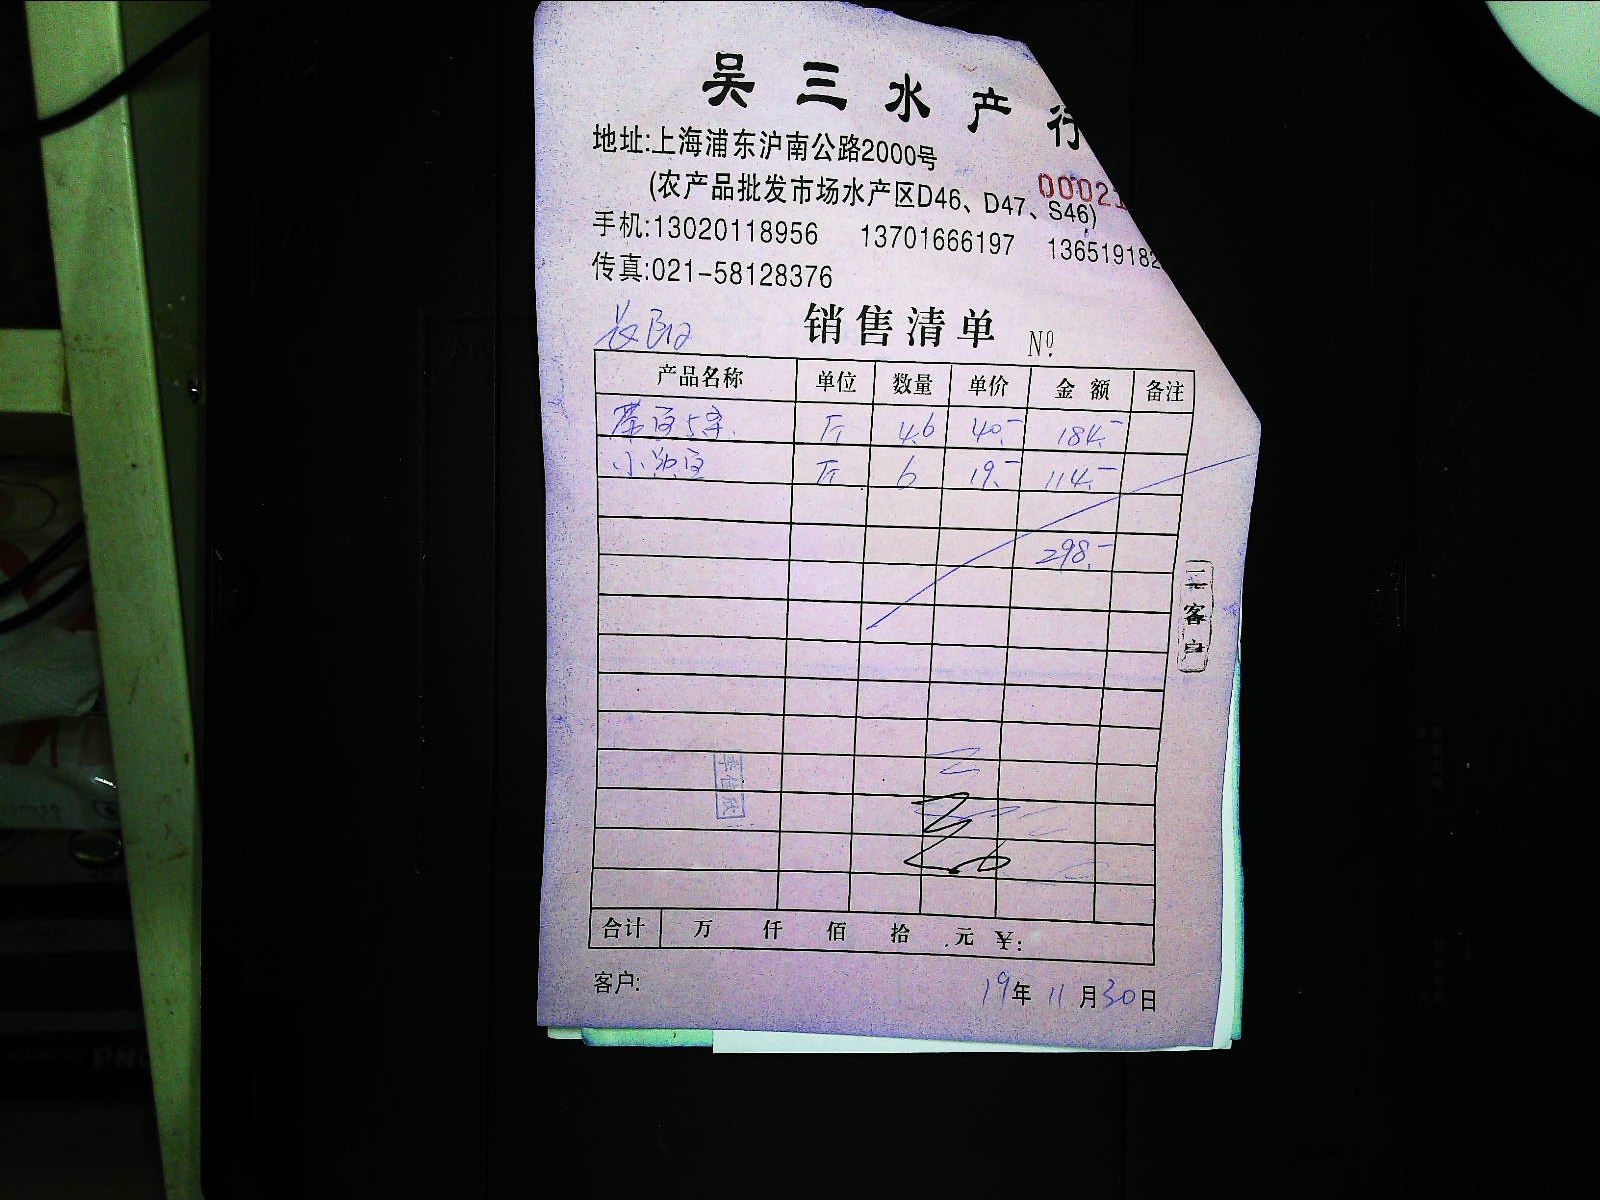 吴三水产行
地址:上海浦东沪南公路2000号
00021
(农产品批发市场水产区D46、D47、S46)
手机:13020118956 13701666197 136519182
传真:021-58128376
长阳 销售清单 Nº
产品名称 单位 数量 单价 金额 备注
带鱼5条 斤 4.6 40.- 184.-
小黄鱼 斤 6 19.- 114.-
298.-
二客户
李佳欣
合计 万 仟 佰 拾 元 ¥:
客户:
19年11月30日